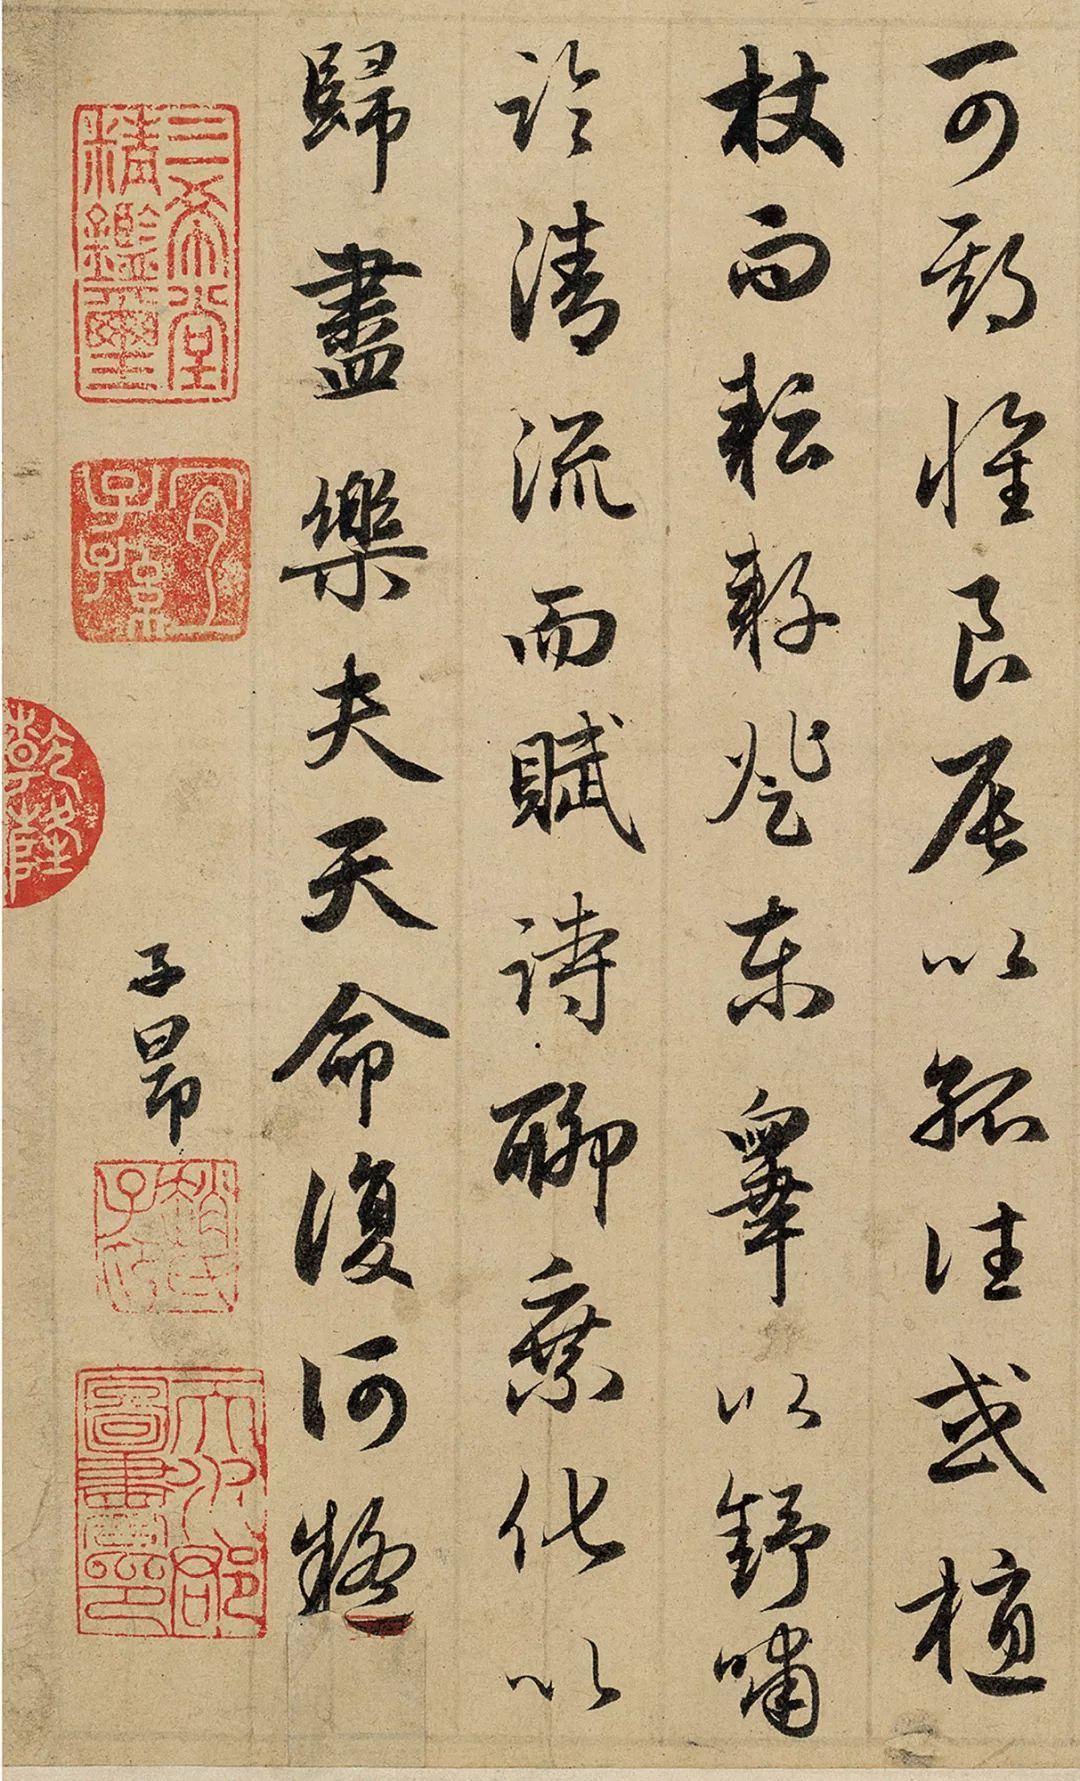 可期惟良辰以孤往或植
杖而耘耔登東皋以舒嘯
臨清流而賦詩聊乘化以
歸盡樂夫天命復何疑
子昂
三希堂精鑑璽
宜子孫
乾隆
趙氏子昂
天水郡圖書印